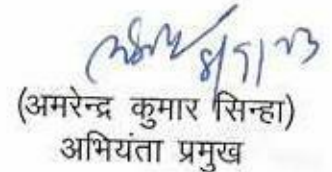 8/9/23
(अमरेन्द्र कुमार सिन्हा)
अभियंता प्रमुख